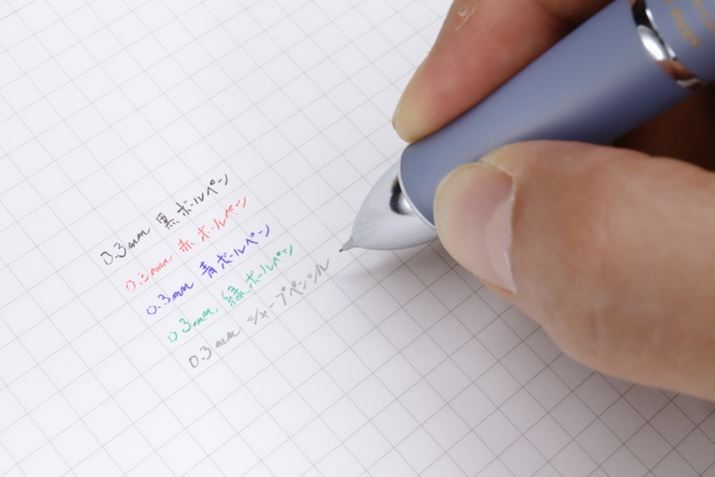 0.3mm 黒ボールペン
0.3mm 赤ボールペン
0.3mm 青ボールペン
0.3mm 緑ボールペン
0.3mm シャープペンシル